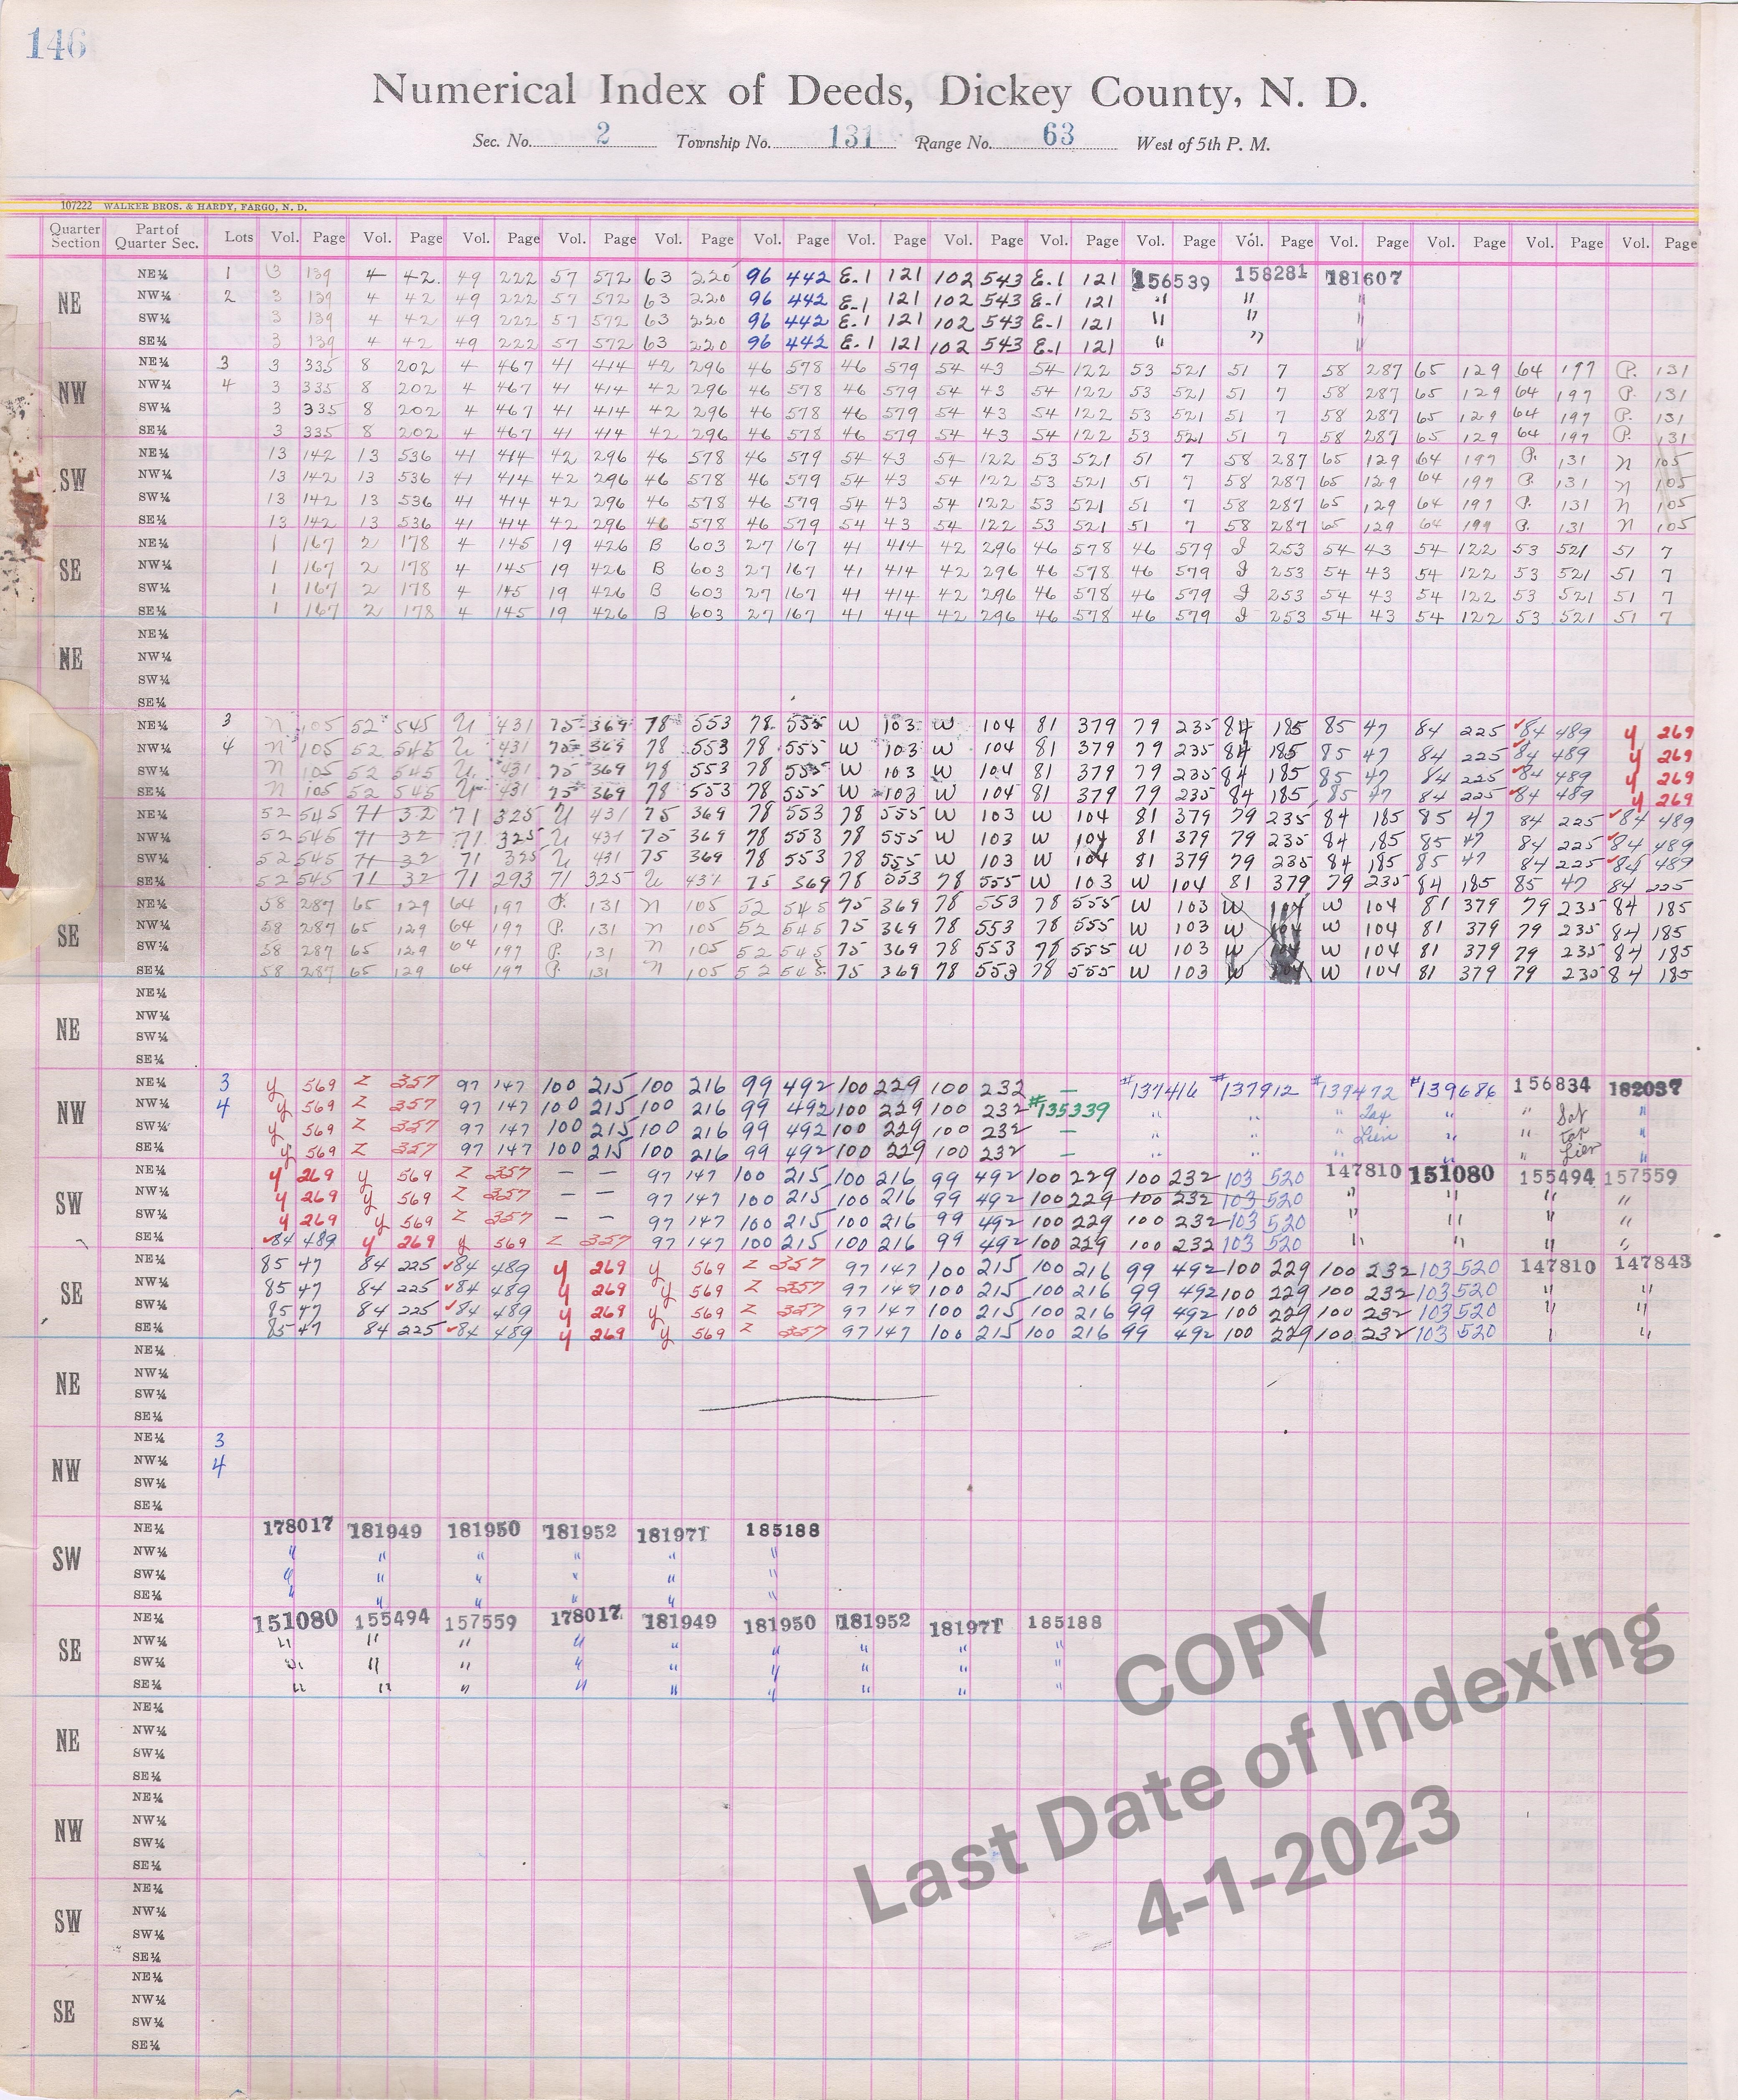 146
Numerical Index of Deeds, Dickey County, N. D.
Sec. No. 2 Township No. 131 Range No. 63 West of 5th P. M.
107222 WALKER BROS. & HARDY, FARGO, N. D.
Quarter Section Part of Quarter Sec. Lots Vol. Page Vol. Page Vol. Page Vol. Page Vol. Page Vol. Page Vol. Page Vol. Page Vol. Page Vol. Page Vol. Page Vol. Page Vol. Page Vol. Page Vol. Page
NE
NE¼ 1 3 139 4 42 49 222 57 572 63 220 96 442 E.1 121 102 543 E.1 121 156539 158281 181607
NW¼ 2 3 139 4 42 49 222 57 572 63 220 96 442 E.1 121 102 543 E.1 121 " " "
SW¼ 3 139 4 42 49 222 57 572 63 220 96 442 E.1 121 102 543 E.1 121 " " "
SE¼ 3 139 4 42 49 222 57 572 63 220 96 442 E.1 121 102 543 E.1 121 " " "
NW
NE¼ 3 3 335 8 202 4 467 41 414 42 296 46 578 46 579 54 43 54 122 53 521 51 7 58 287 65 129 64 197 P. 131
NW¼ 4 3 335 8 202 4 467 41 414 42 296 46 578 46 579 54 43 54 122 53 521 51 7 58 287 65 129 64 197 P. 131
SW¼ 3 335 8 202 4 467 41 414 42 296 46 578 46 579 54 43 54 122 53 521 51 7 58 287 65 129 64 197 P. 131
SE¼ 3 335 8 202 4 467 41 414 42 296 46 578 46 579 54 43 54 122 53 521 51 7 58 287 65 129 64 197 P. 131
SW
NE¼ 13 142 13 536 41 414 42 296 46 578 46 579 54 43 54 122 53 521 51 7 58 287 65 129 64 197 P. 131 n 105
NW¼ 13 142 13 536 41 414 42 296 46 578 46 579 54 43 54 122 53 521 51 7 58 287 65 129 64 197 P. 131 n 105
SW¼ 13 142 13 536 41 414 42 296 46 578 46 579 54 43 54 122 53 521 51 7 58 287 65 129 64 197 P. 131 n 105
SE¼ 13 142 13 536 41 414 42 296 46 578 46 579 54 43 54 122 53 521 51 7 58 287 65 129 64 199 P. 131 n 105
SE
NE¼ 1 167 2 178 4 145 19 426 B 603 27 167 41 414 42 296 46 578 46 579 253 54 43 54 122 53 521 51 7
NW¼ 1 167 2 178 4 145 19 426 B 603 27 167 41 414 42 296 46 578 46 579 253 54 43 54 122 53 521 51 7
SW¼ 1 167 2 178 4 145 19 426 B 603 27 167 41 414 42 296 46 578 46 579 253 54 43 54 122 53 521 51 7
SE¼ 1 167 2 178 4 145 19 426 B 603 27 167 41 414 42 296 46 578 46 579 253 54 43 54 122 53 521 51 7
NE
NE¼
NW¼
SW¼
SE¼
NE¼ 3 n 105 52 545 U 431 75 369 78 553 78 555 W 103 W 104 81 379 79 235 84 185 85 47 84 225 84 489 y 269
NW¼ 4 n 105 52 545 U 431 75 369 78 553 78 555 W 103 W 104 81 379 79 235 84 185 85 47 84 225 84 489 y 269
SW¼ n 105 52 545 U 431 75 369 78 553 78 555 W 103 W 104 81 379 79 235 84 185 85 47 84 225 84 489 y 269
SE¼ n 105 52 545 U 431 75 369 78 553 78 555 W 103 W 104 81 379 79 235 84 185 85 47 84 225 84 489 y 269
NE¼ 52 545 71 32 71 325 U 431 75 369 78 553 78 555 W 103 W 104 81 379 79 235 84 185 85 47 84 225 84 489
NW¼ 52 545 71 32 71 325 U 431 75 369 78 553 78 555 W 103 W 104 81 379 79 235 84 185 85 47 84 225 84 489
SW¼ 52 545 71 32 71 325 U 431 75 369 78 553 78 555 W 103 W 104 81 379 79 235 84 185 85 47 84 225 84 489
SE¼ 52 545 71 32 71 293 71 325 U 431 75 369 78 553 78 555 W 103 W 104 81 379 79 235 84 185 85 47 84 225
SE
NE¼ 58 287 65 129 64 197 P. 131 n 105 52 545 75 369 78 553 78 555 W 103 W 104 W 104 81 379 79 235 84 185
NW¼ 58 287 65 129 64 197 P. 131 n 105 52 545 75 369 78 553 78 555 W 103 W 104 W 104 81 379 79 235 84 185
SW¼ 58 287 65 129 64 197 P. 131 n 105 52 545 75 369 78 553 78 555 W 103 W 104 W 104 81 379 79 235 84 185
SE¼ 58 287 65 129 64 197 P. 131 n 105 52 545 75 369 78 553 78 555 W 103 W 104 W 104 81 379 79 235 84 185
NE
NE¼
NW¼
SW¼
SE¼
NW
NE¼ 3 y 569 Z 357 97 147 100 215 100 216 99 492 100 229 100 232 — #137416 #137912 #139472 #139686 156834 182037
NW¼ 4 y 569 Z 357 97 147 100 215 100 216 99 492 100 229 100 232 #135339 " " " Tax " " Sat "
SW¼ y 569 Z 357 97 147 100 215 100 216 99 492 100 229 100 232 — " " " Lien " " Tax "
SE¼ y 569 Z 357 97 147 100 215 100 216 99 492 100 229 100 232 — " " " " " Lien "
SW
NE¼ y 269 y 569 Z 357 — — 97 147 100 215 100 216 99 492 100 229 100 232 103 520 147810 151080 155494 157559
NW¼ y 269 y 569 Z 357 — — 97 147 100 215 100 216 99 492 100 229 100 232 103 520 " " " "
SW¼ y 269 y 569 Z 357 — — 97 147 100 215 100 216 99 492 100 229 100 232 103 520 " " " "
SE¼ 84 489 y 269 y 569 Z 357 97 147 100 215 100 216 99 492 100 229 100 232 103 520 " " " "
SE
NE¼ 85 47 84 225 84 489 y 269 y 569 Z 357 97 147 100 215 100 216 99 492 100 229 100 232 103 520 147810 147843
NW¼ 85 47 84 225 84 489 y 269 y 569 Z 357 97 147 100 215 100 216 99 492 100 229 100 232 103 520 " "
SW¼ 85 47 84 225 84 489 y 269 y 569 Z 357 97 147 100 215 100 216 99 492 100 229 100 232 103 520 " "
SE¼ 85 47 84 225 84 489 y 269 y 569 Z 357 97 147 100 215 100 216 99 492 100 229 100 232 103 520 " "
NE
NE¼
NW¼
SW¼
SE¼
NW
NE¼ 3
NW¼ 4
SW¼
SE¼
SW
NE¼ 178017 181949 181950 181952 181971 185188
NW¼ " " " " " "
SW¼ " " " " " "
SE¼ " " " " " "
SE
NE¼ 151080 155494 157559 178017 181949 181950 181952 181971 185188
NW¼ " " " " " " " " "
SW¼ " " " " " " " " "
SE¼ " " " " " " " " "
NE
NE¼
NW¼
SW¼
SE¼
NW
NE¼
NW¼
SW¼
SE¼
SW
NE¼
NW¼
SW¼
SE¼
SE
NE¼
NW¼
SW¼
SE¼
COPY
Last Date of Indexing
4-1-2023